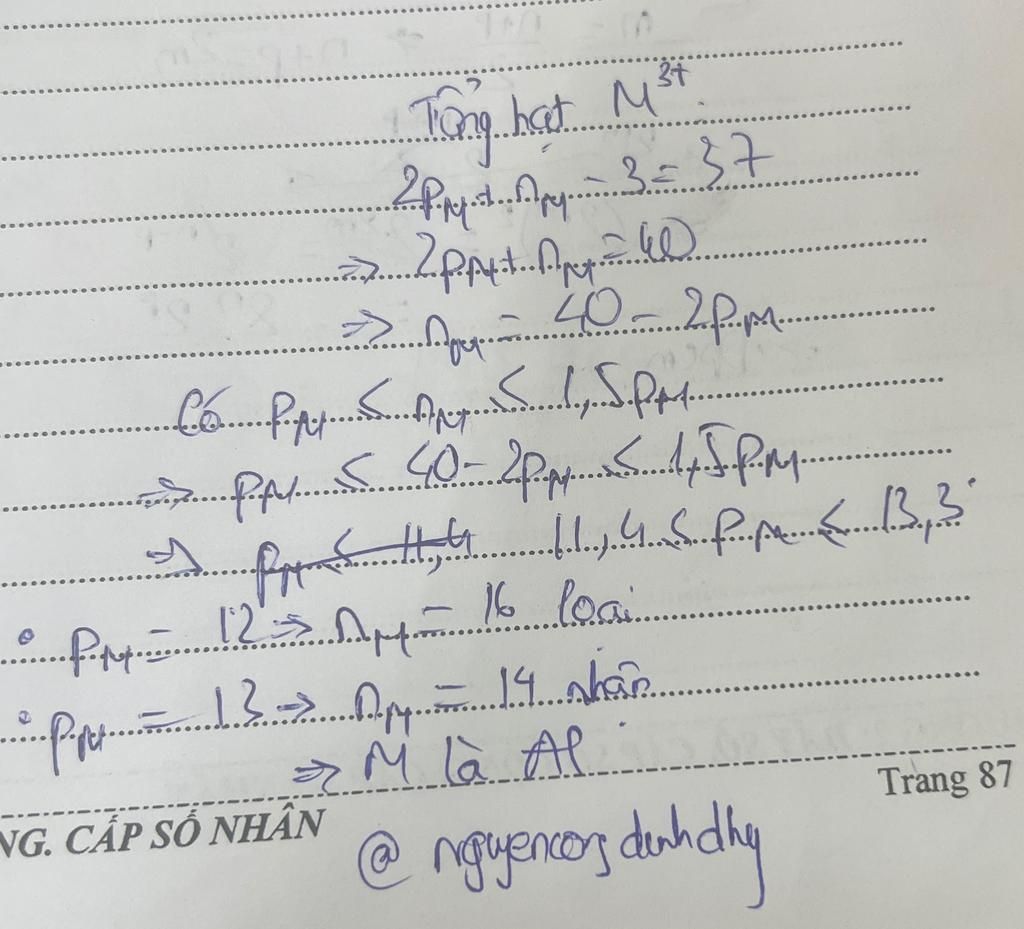 Tổng hạt M³⁺.
2pM + nM - 3 = 37
⇒ 2pM + nM = 40
⇒ nM = 40 - 2pM
Có pM ≤ nM ≤ 1,5pM
⇒ pM ≤ 40 - 2pM ≤ 1,5pM
⇒ pM ≤ 11,4 11,4 ≤ pM ≤ 13,3
• pM = 12 ⇒ nM = 16 loại
• pM = 13 ⇒ nM = 14 nhận
⇒ M là Al
Trang 87
NG. CẤP SỐ NHÂN
@ nguyencongdinhdhy